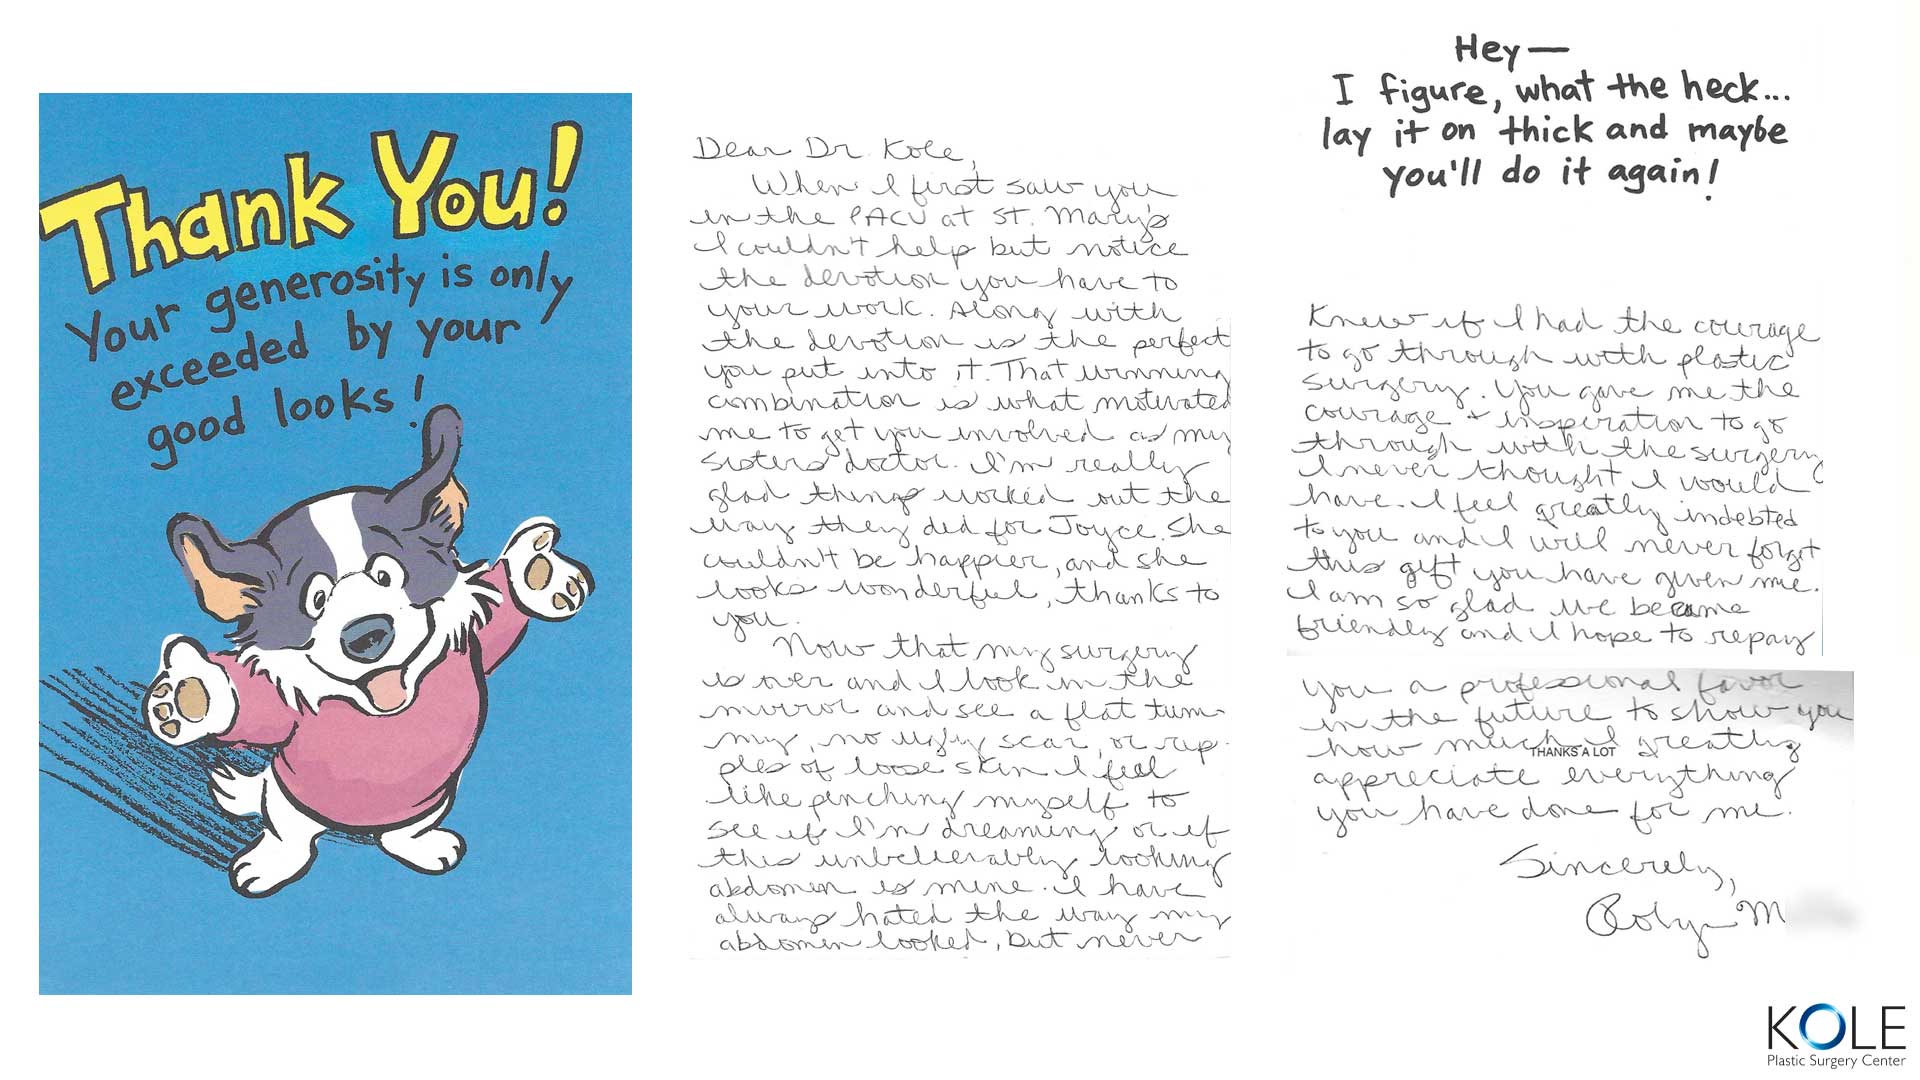 Thank You!
Your generosity is only
exceeded by your
good looks!
Dear Dr. Kole,
When I first saw you
in the PACU at St. Mary's
I couldn't help but notice
the devotion you have to
your work. Along with
the devotion is the perfect
you put into it. That winning
combination is what motivated
me to get you involved as my
sisters doctor. I'm really
glad things worked out the
way they did for Joyce. She
couldn't be happier, and she
looks wonderful, thanks to
you.
Now that my surgery
is over and I look in the
mirror and see a flat tum-
my, no ugly scar, or rip-
ples of loose skin I feel
like pinching myself to
see if I'm dreaming or if
this unbelievably looking
abdomen is mine. I have
always hated the way my
abdomen looked, but never
Hey—
I figure, what the heck...
lay it on thick and maybe
you'll do it again!
Knew if I had the courage
to go through with plastic
surgery. You gave me the
courage + insperation to go
through with the surgery
I never thought I would
have. I feel greatly indebted
to you and I will never forget
this gift you have given me.
I am so glad we became
friendly and I hope to repay
you a professional favor
in the future to show you
how much I greatly
THANKS A LOT
appreciate everything
you have done for me.
Sincerely,
Robyn M
KOLE
Plastic Surgery Center